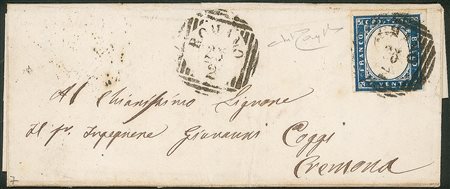 ROMANO
FRANCO
BOLLO
VENTI
Al Chiarissimo Signore
Il Sr. Ingegnere Giovanni Coggi
Cremona